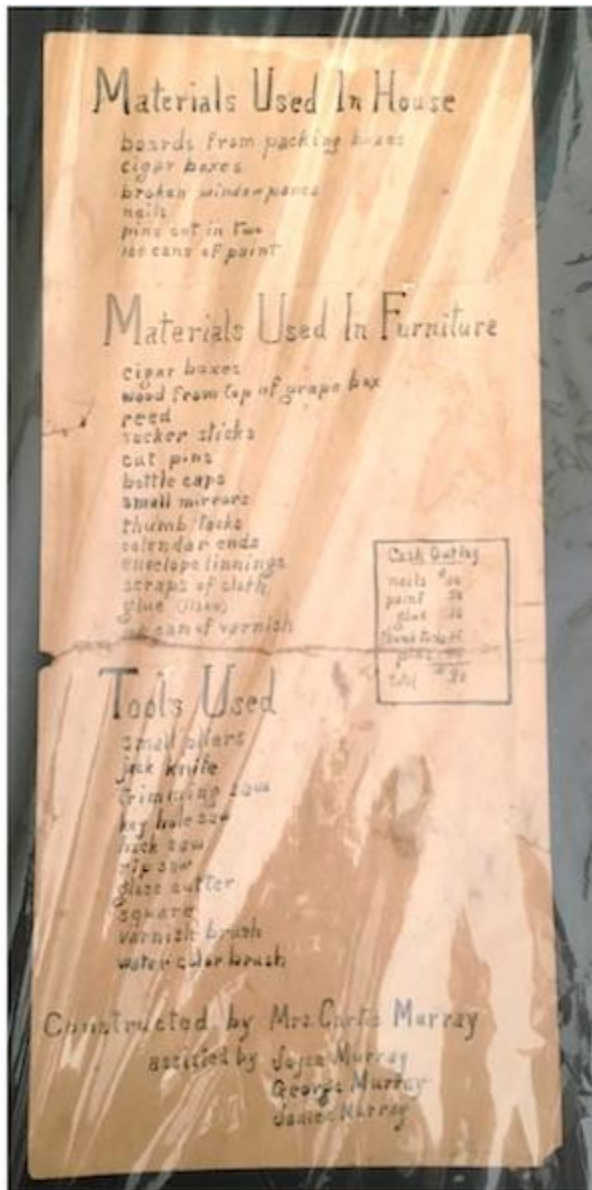 Materials Used In House
boards from packing boxes
cigar boxes
broken window panes
nails
pins cut in two
10¢ cans of paint
Materials Used In Furniture
cigar boxes
wood from top of grape box
reed
sucker sticks
cut pins
bottle caps
small mirrors
thumb tacks
calendar ends
envelope linnings
scraps of cloth
glue
can of varnish
Cash Outlay
nails
paint 50
glue
thumb tacks
pins
total
Tools Used
small pliers
jack knife
trimming saw
key hole saw
hack saw
rip saw
glass cutter
square
varnish brush
water color brush
Constructed by Mrs. Curtis Murray
assisted by Joyce Murray
George Murray
James Murray